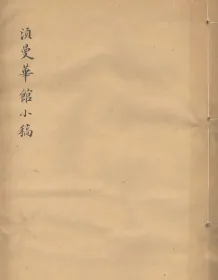 湏曼華館小稿